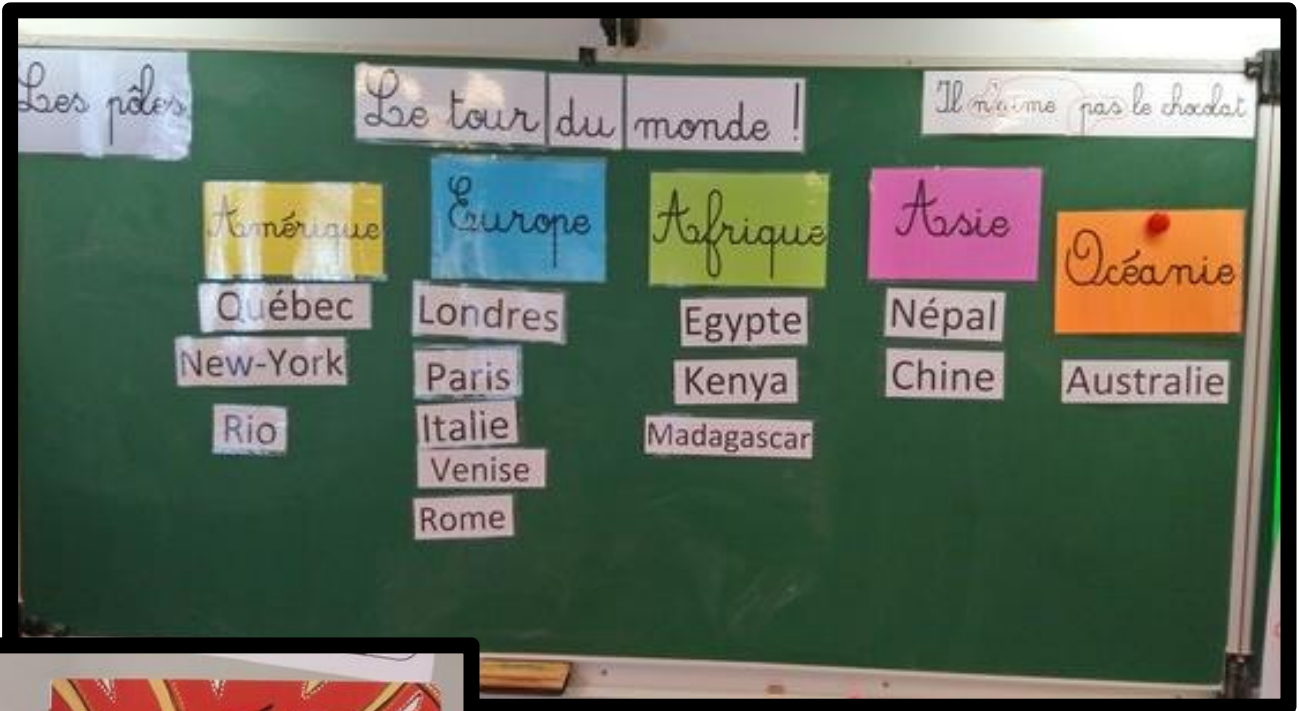 Les pôles
Le tour du monde !
Il n'aime pas le chocolat
Amérique
Québec
New-York
Rio
Europe
Londres
Paris
Italie
Venise
Rome
Afrique
Egypte
Kenya
Madagascar
Asie
Népal
Chine
Océanie
Australie